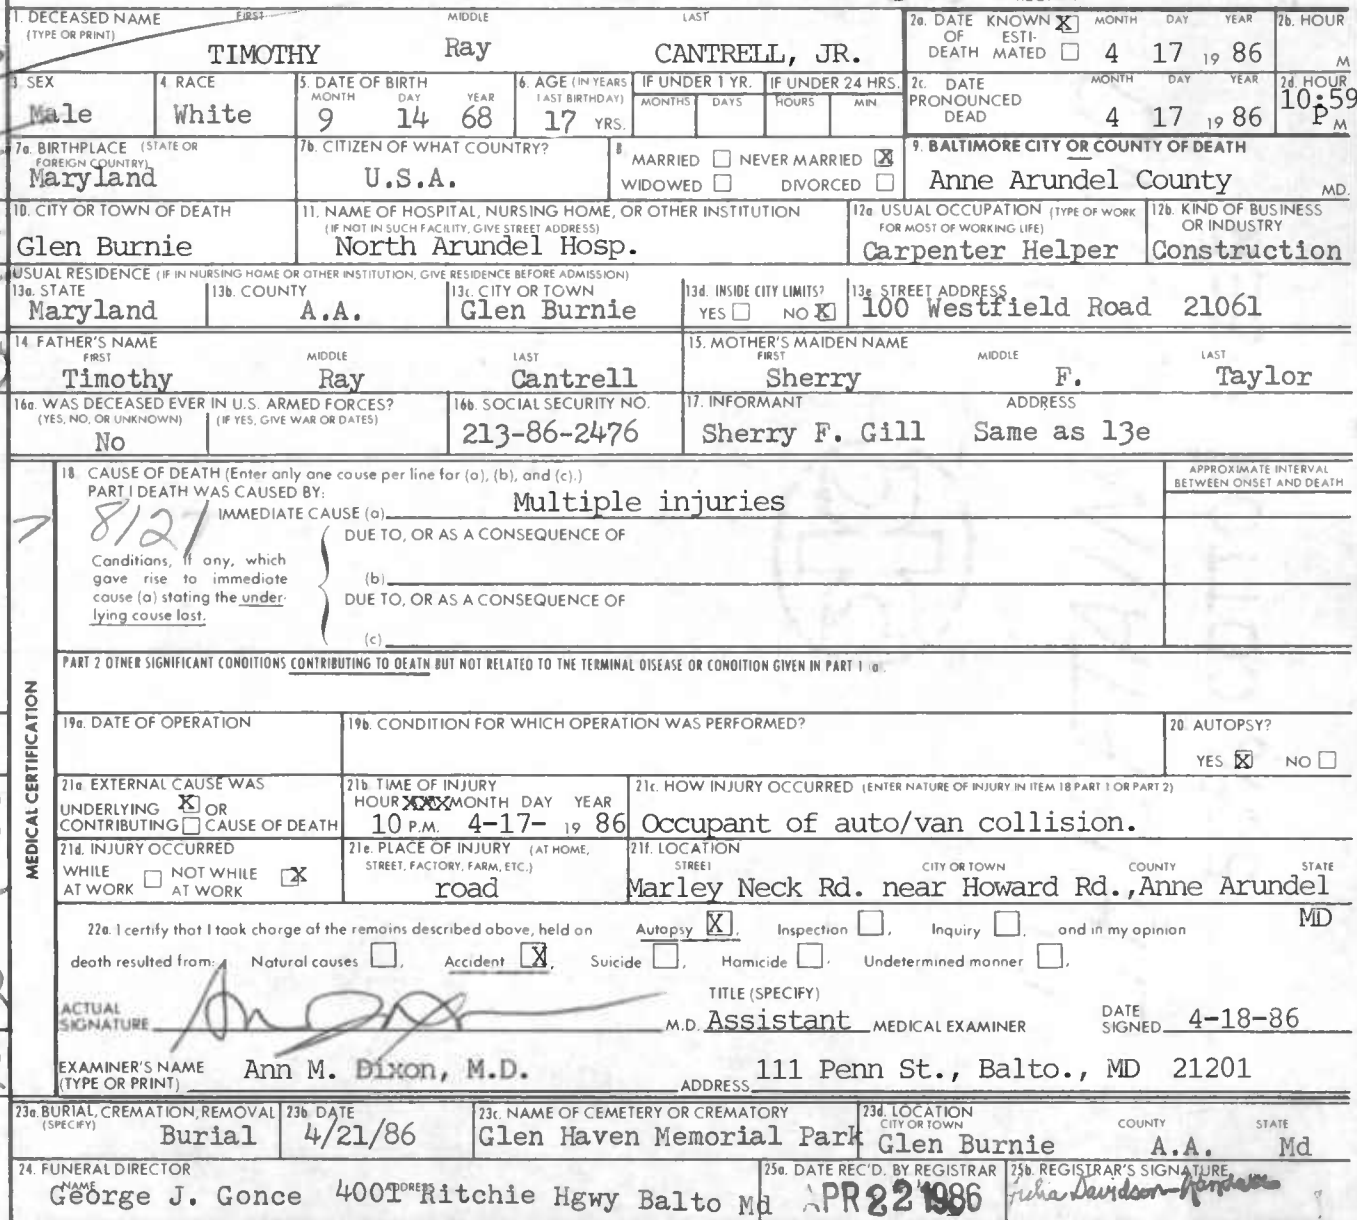 1. DECEASED NAME (TYPE OR PRINT) FIRST MIDDLE LAST
TIMOTHY Ray CANTRELL, JR.
2a. DATE OF DEATH KNOWN X ESTIMATED MONTH DAY YEAR
4 17 19 86
2b. HOUR M
3. SEX
Male
4. RACE
White
5. DATE OF BIRTH MONTH DAY YEAR
9 14 68
6. AGE (IN YEARS LAST BIRTHDAY)
17 YRS.
IF UNDER 1 YR. MONTHS DAYS
IF UNDER 24 HRS. HOURS MIN.
2c. DATE PRONOUNCED DEAD MONTH DAY YEAR
4 17 19 86
2d. HOUR
10:59 P M
7a. BIRTHPLACE (STATE OR FOREIGN COUNTRY)
Maryland
7b. CITIZEN OF WHAT COUNTRY?
U.S.A.
8 MARRIED NEVER MARRIED X
WIDOWED DIVORCED
9. BALTIMORE CITY OR COUNTY OF DEATH
Anne Arundel County MD.
10. CITY OR TOWN OF DEATH
Glen Burnie
11. NAME OF HOSPITAL, NURSING HOME, OR OTHER INSTITUTION
(IF NOT IN SUCH FACILITY, GIVE STREET ADDRESS)
North Arundel Hosp.
12a. USUAL OCCUPATION (TYPE OF WORK FOR MOST OF WORKING LIFE)
Carpenter Helper
12b. KIND OF BUSINESS OR INDUSTRY
Construction
USUAL RESIDENCE (IF IN NURSING HOME OR OTHER INSTITUTION, GIVE RESIDENCE BEFORE ADMISSION)
13a. STATE
Maryland
13b. COUNTY
A.A.
13c. CITY OR TOWN
Glen Burnie
13d. INSIDE CITY LIMITS?
YES NO X
13e. STREET ADDRESS
100 Westfield Road 21061
14. FATHER'S NAME FIRST MIDDLE LAST
Timothy Ray Cantrell
15. MOTHER'S MAIDEN NAME FIRST MIDDLE LAST
Sherry F. Taylor
16a. WAS DECEASED EVER IN U.S. ARMED FORCES?
(YES, NO, OR UNKNOWN) (IF YES, GIVE WAR OR DATES)
No
16b. SOCIAL SECURITY NO.
213-86-2476
17. INFORMANT ADDRESS
Sherry F. Gill Same as 13e
MEDICAL CERTIFICATION
18. CAUSE OF DEATH (Enter only one cause per line for (a), (b), and (c).)
APPROXIMATE INTERVAL BETWEEN ONSET AND DEATH
PART I DEATH WAS CAUSED BY:
IMMEDIATE CAUSE (a) Multiple injuries
DUE TO, OR AS A CONSEQUENCE OF
Conditions, if any, which
gave rise to immediate
cause (a) stating the under-
lying cause last.
(b)
DUE TO, OR AS A CONSEQUENCE OF
(c)
PART 2 OTHER SIGNIFICANT CONDITIONS CONTRIBUTING TO DEATH BUT NOT RELATED TO THE TERMINAL DISEASE OR CONDITION GIVEN IN PART 1 (a).
19a. DATE OF OPERATION
19b. CONDITION FOR WHICH OPERATION WAS PERFORMED?
20. AUTOPSY?
YES X NO
21a. EXTERNAL CAUSE WAS
UNDERLYING X OR
CONTRIBUTING CAUSE OF DEATH
21b. TIME OF INJURY
HOUR XXX MONTH DAY YEAR
10 P.M. 4-17- 19 86
21c. HOW INJURY OCCURRED (ENTER NATURE OF INJURY IN ITEM 18 PART 1 OR PART 2)
Occupant of auto/van collision.
21d. INJURY OCCURRED
WHILE AT WORK NOT WHILE AT WORK X
21e. PLACE OF INJURY (AT HOME, STREET, FACTORY, FARM, ETC.)
road
21f. LOCATION
STREET CITY OR TOWN COUNTY STATE
Marley Neck Rd. near Howard Rd.,Anne Arundel
MD
22a. I certify that I took charge of the remains described above, held an Autopsy X, Inspection, Inquiry, and in my opinion
death resulted from: Natural causes, Accident X, Suicide, Homicide, Undetermined manner.
ACTUAL SIGNATURE M.D.
TITLE (SPECIFY)
Assistant MEDICAL EXAMINER
DATE SIGNED 4-18-86
EXAMINER'S NAME (TYPE OR PRINT) Ann M. Dixon, M.D.
ADDRESS 111 Penn St., Balto., MD 21201
23a. BURIAL, CREMATION, REMOVAL (SPECIFY)
Burial
23b. DATE
4/21/86
23c. NAME OF CEMETERY OR CREMATORY
Glen Haven Memorial Park
23d. LOCATION CITY OR TOWN COUNTY STATE
Glen Burnie A.A. Md
24. FUNERAL DIRECTOR
NAME ADDRESS
George J. Gonce 4001 Ritchie Hgwy Balto Md
25a. DATE REC'D. BY REGISTRAR
APR 22 1986
25b. REGISTRAR'S SIGNATURE